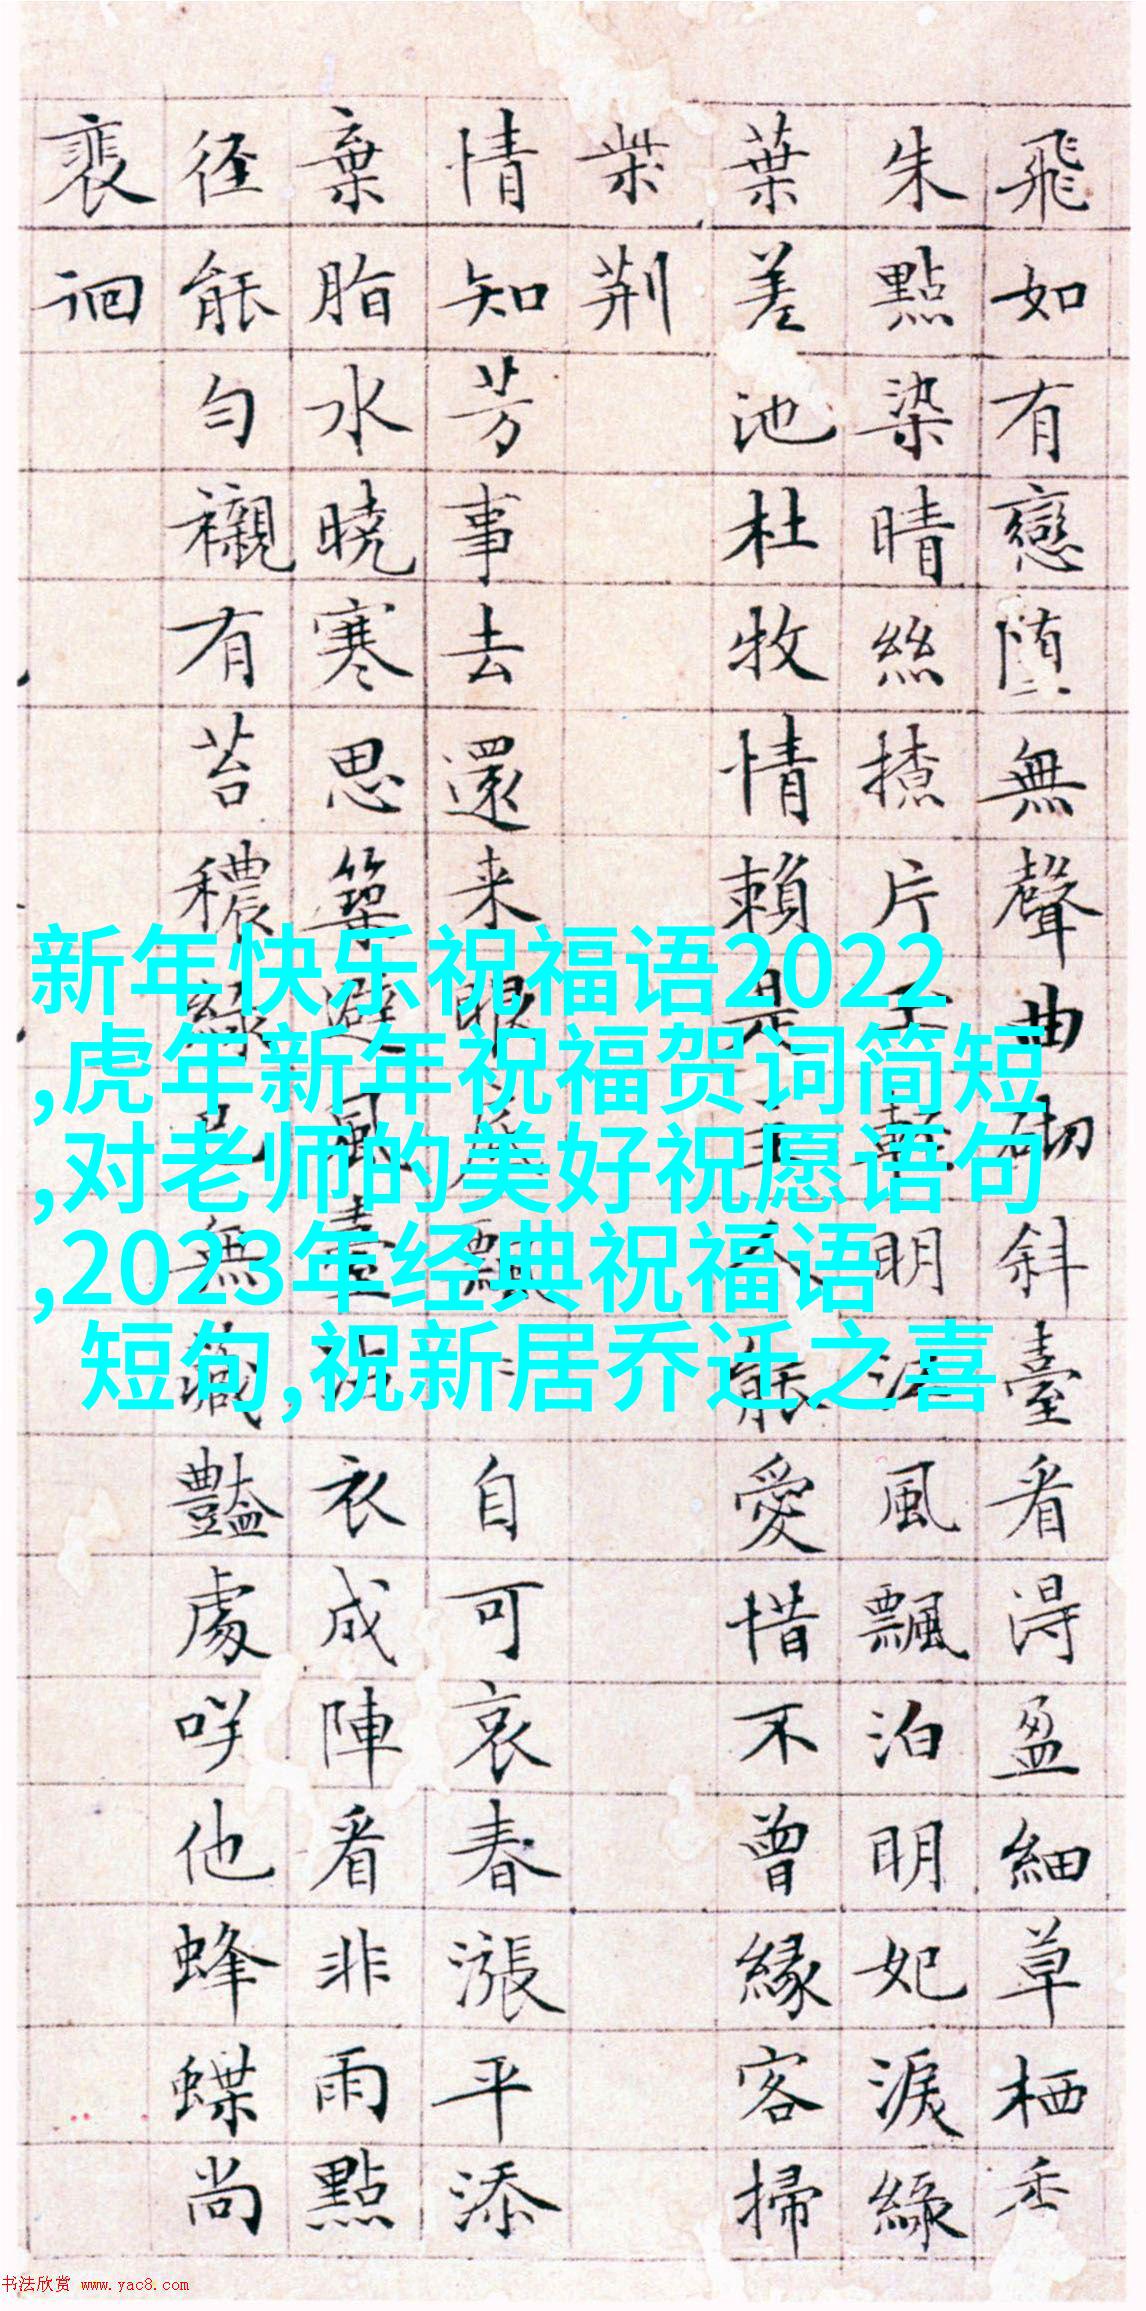 新年快乐祝福语2022
,虎年新年祝福贺词简短
,对老师的美好祝愿语句
,2023年经典祝福语
短句,祝新居乔迁之喜
飛如有戀堕無聲曲砌斜臺看淂盈細草栖香
朱點染晴絲片明風飄泊明妃淚緑
葉差池杜牧情賴是主人能愛惜不曾緣客掃
柴荆
情知芳事去還来眼底飄自可哀春漲平添
棄脂水曉寒思築避風臺沾衣成陣看非雨點
徑能匀襯有苔穠緑已無藏豔處咲他蜂蝶尚
裵徊
书法欣赏 www.yac8.com